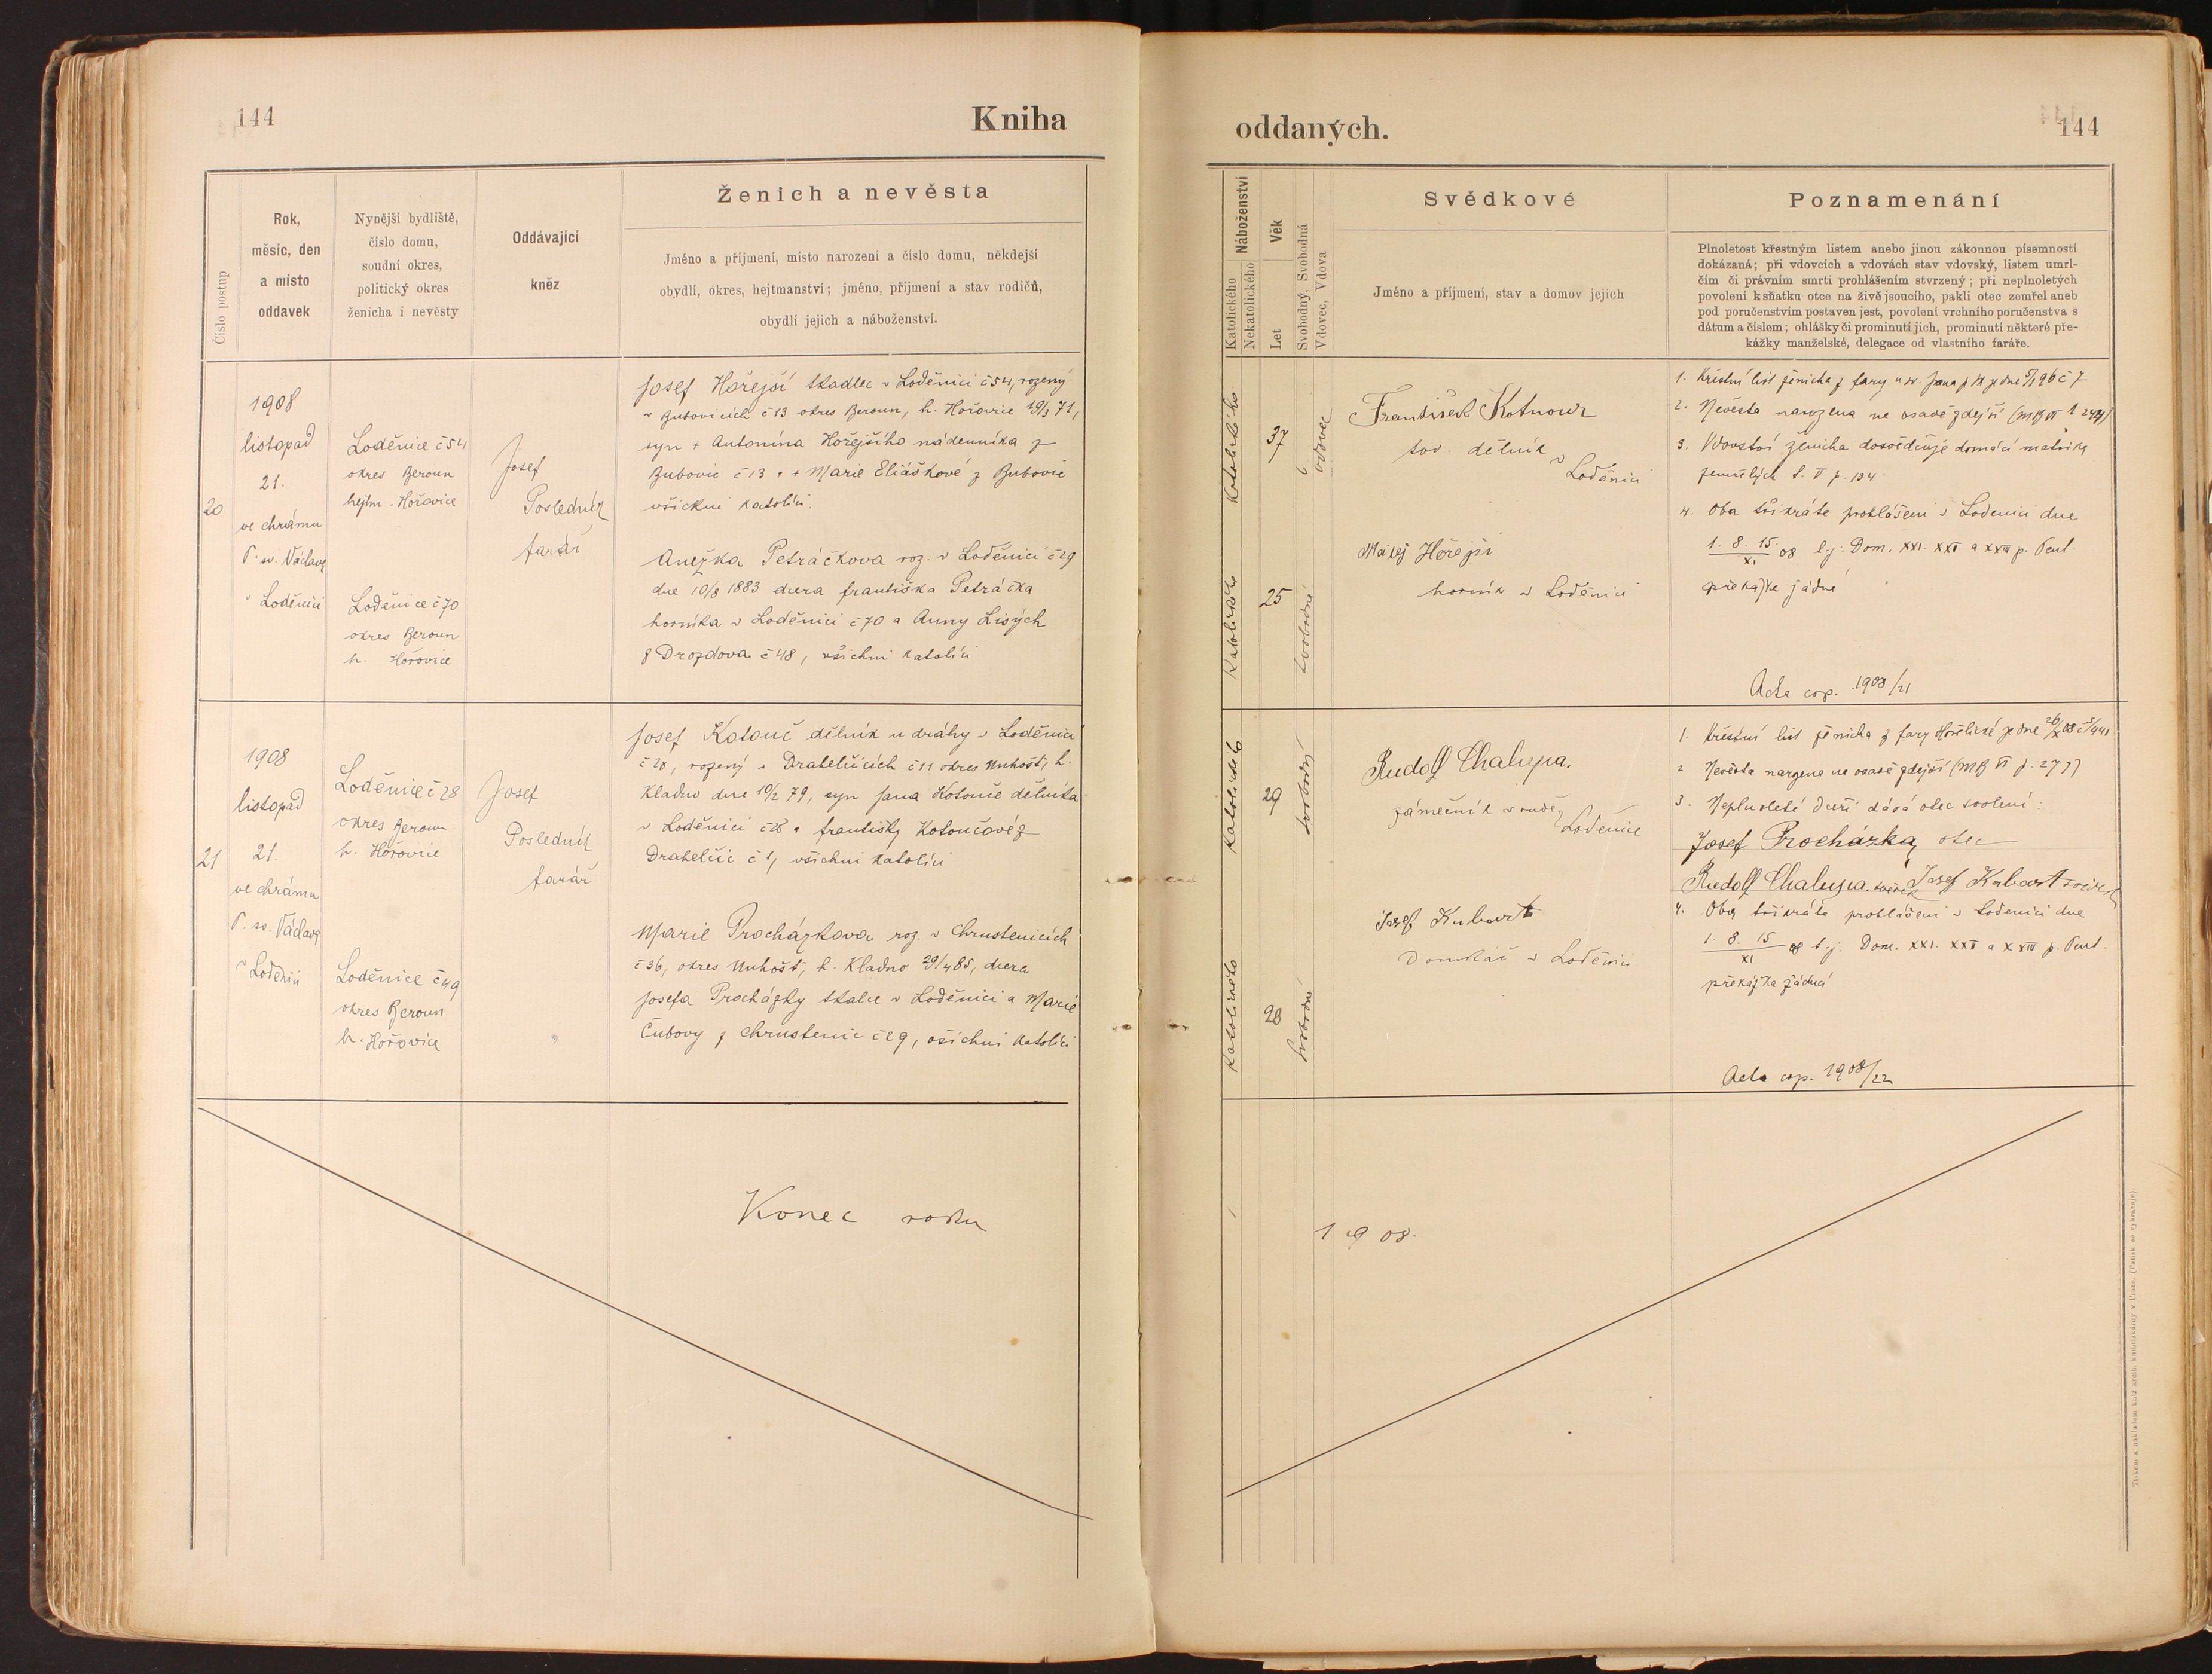 144
Kniha
Číslo postup
Rok,
měsíc, den
a místo
oddavek
Nynější bydliště,
číslo domu,
soudní okres,
politický okres
ženicha i nevěsty
Oddávající
kněz
Ženich a nevěsta
Jméno a příjmení, místo narození a číslo domu, někdejší
obydlí, okres, hejtmanství; jméno, příjmení a stav rodičů,
obydlí jejich a náboženství.
20
1908
listopad
21.
ve chrámu
P. sv. Václava
v Loděnici
Loděnice č 54
okres Beroun
hejtm. Hořovice
Loděnice č 70
okres Beroun
h. Hořovice
Josef
Posledník
farář
Josef Hořejší tkadlec v Loděnici č 54, rozený
v Bubovicích č 13 okres Beroun, h. Hořovice 19/3 71,
syn + Antonína Hořejšího nádenníka z
Bubovic č 13 a + Marie Eliáškové z Bubovic
všickni katolíci.
Anežka Petráčkova roz. v Loděnici č 29
dne 10/8 1883 dcera františka Petráčka
horníka v Loděnici č 70 a Anny Lisých
z Drozdova č 48, všichni katolíci
21
1908
listopad
21.
ve chrámu
P. sv. Václava
v Loděnici
Loděnice č 28
okres Beroun
h. Hořovice
Loděnice č 49
okres Beroun
h. Hořovice
Josef
Posledník
farář
Josef Kotouč dělník u dráhy v Loděnici
č 28, rozený v Drahelčicích č 11 okres Unhošť, h.
Kladno dne 10/2 79, syn Jana Kotouče dělníka
v Loděnici č 28 a františky Kotoučové z
Drahelčic č 1, všichni katolíci
Marie Procházkova roz. v Chrustenicích
č 36, okres Unhošť, h. Kladno 29/4 85, dcera
Josefa Procházky tkalce v Loděnici a Marie
Čubovy z Chrustenic č 29, všichni katolíci
Konec roku
oddaných.
144
Náboženství
Katolického
Nekatolického
Věk
Let
Svobodný, Svobodná
Vdovec, Vdova
Svědkové
Jméno a příjmení, stav a domov jejich
Poznamenání
Plnoletost křestným listem anebo jinou zákonnou písemností
dokázaná; při vdovcích a vdovách stav vdovský, listem umrl-
čím či právním smrti prohlášením stvrzený; při neplnoletých
povolení k sňatku otce na živě jsoucího, pakli otec zemřel aneb
pod poručenstvím postaven jest, povolení vrchního poručenstva s
dátum a číslem; ohlášky či prominutí jich, prominutí některé pře-
kážky manželské, delegace od vlastního faráře.
Katolického
37
vdovec
Katolického
25
svobodná
František Kotnour
tov. dělník
v Loděnici
Matěj Hořejší
horník v Loděnici
1. Křestní list ženicha z fary u sv. Jana p. Sk. ze dne č 7
2. Nevěsta narozena na osadě zdejší
3. Vdovství ženicha dosvědčuje domácí matrika
zemřelých t. V p. 134.
4. Oba třikráte prohlášeni v Loděnici dne
1. 8. 15/XI 08 t.j. Dom. XXI. XXII a XXIII p. Pent.
překážka žádná
Acta cop. 1908/21
Katolického
29
svobodný
Katolického
23
svobodná
Rudolf Chalupa.
zámečník
Loděnice
Josef Kubart
Domkář v Loděnici
1. Křestní list ženicha z fary Hořelické ze dne 26/X 08 č 441
2 Nevěsta narozena na osadě zdejší (MB VI p. 277)
3. Neplnoleté dceři dává otec svolení:
Josef Procházka, otec
Rudolf Chalupa. svědek Josef Kubart svědek
4. Oba třikráte prohlášeni v Loděnici dne
1. 8. 15/XI 08 t.j. Dom. XXI. XXII a XXIII p. Pent.
překážka žádná
Acta cop. 1908/22
1908.